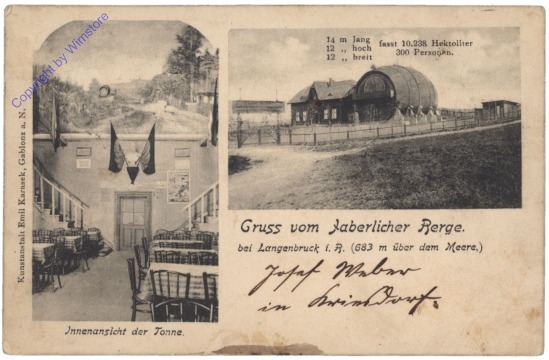 14 m lang
12 „ hoch
12 „ breit
fasst 10.238 Hektoliter
300 Personen.
Copyright by Wimstore
Kunstanstalt Emil Karasek, Gablonz a. N.
Gruss vom Jaberlicher Berge.
bei Langenbruck i. B. (683 m über dem Meere.)
Josef Weber
in Kriesdorf.
Innenansicht der Tonne.